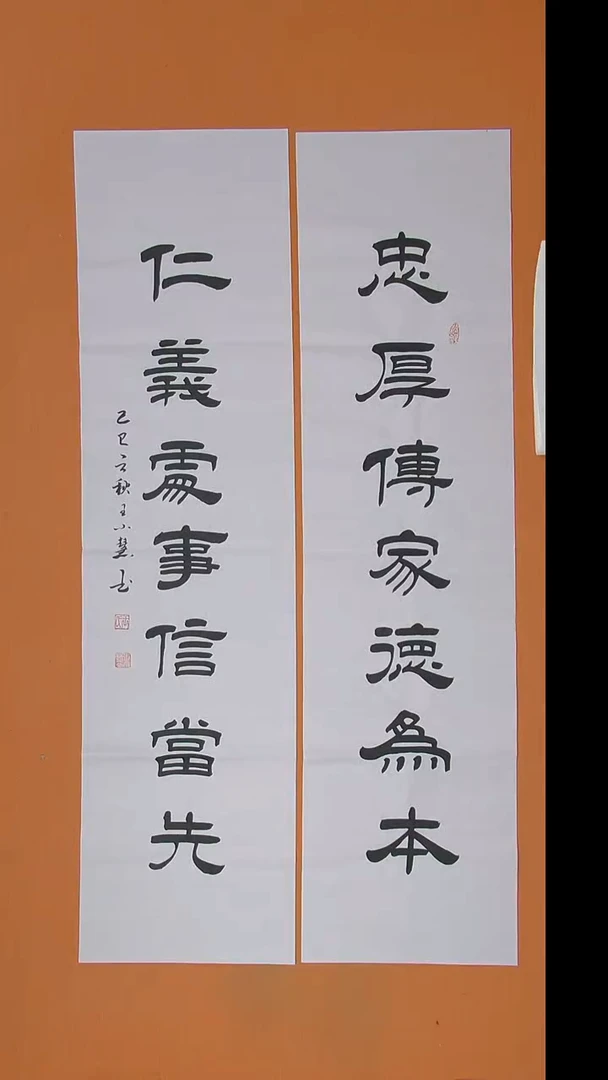 忠厚傳家德為本
仁義處事信當先
王小慧書